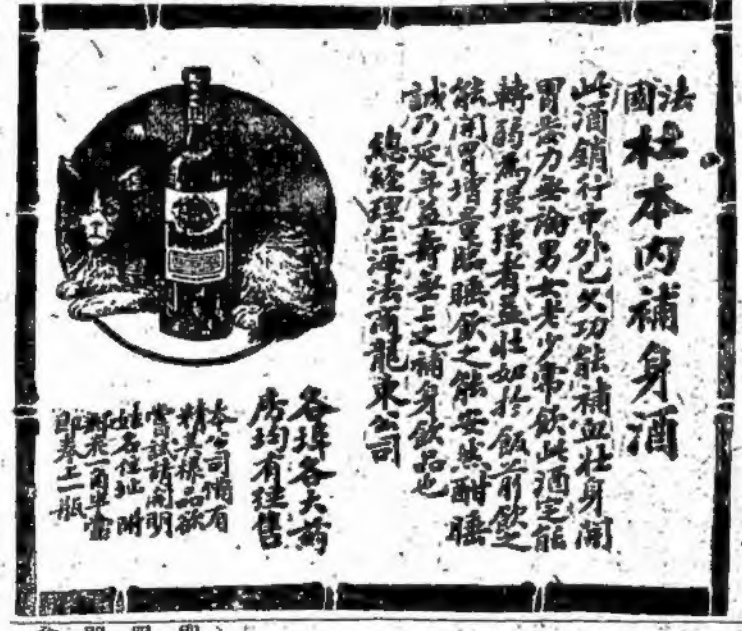 法國
杜本內補身酒
此酒銷行中外已久功能補血壯身開
胃無力無論男女老少常飲此酒定能
轉弱為强强者益壯如於飯前飲之
能開胃增量臨睡飲之能安然酣睡
誠乃延年益壽無上之補身飲品也
總經理上海法商龍東公司
各埠各大藥
房均有經售
本公司備有
精美樣品欲
嘗試請開明
姓名住址附
郵票一角半當
即奉上一瓶